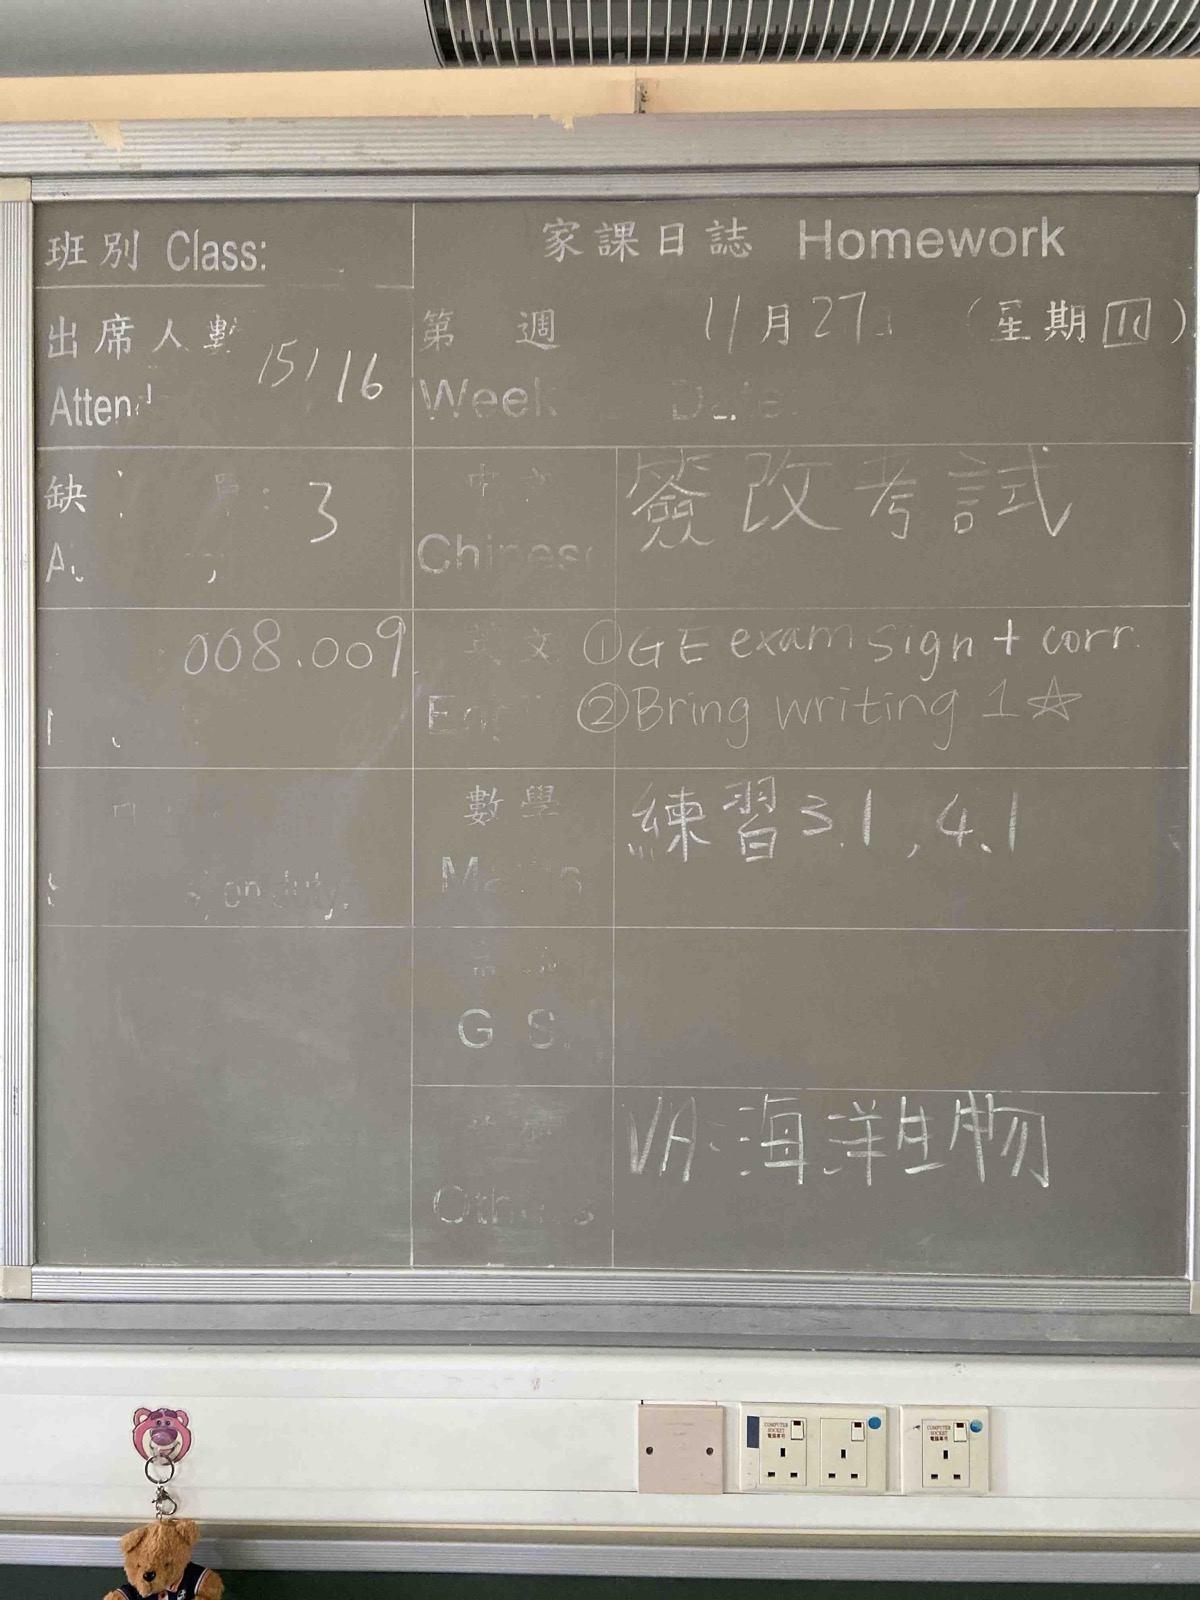 班別 Class:
家課日誌 Homework
出席人數 15/16
Attend
第 週 11月27日 (星期四)
Week Date:
缺 : 3
中文 簽改考試
Chinese
008.009
英文 ①GE exam sign + corr.
②Bring writing 1☆
數學 練習3.1, 4.1
on duty
G S
VA:海洋生物
Others
COMPUTER SOCKET
電腦專用
COMPUTER SOCKET
電腦專用